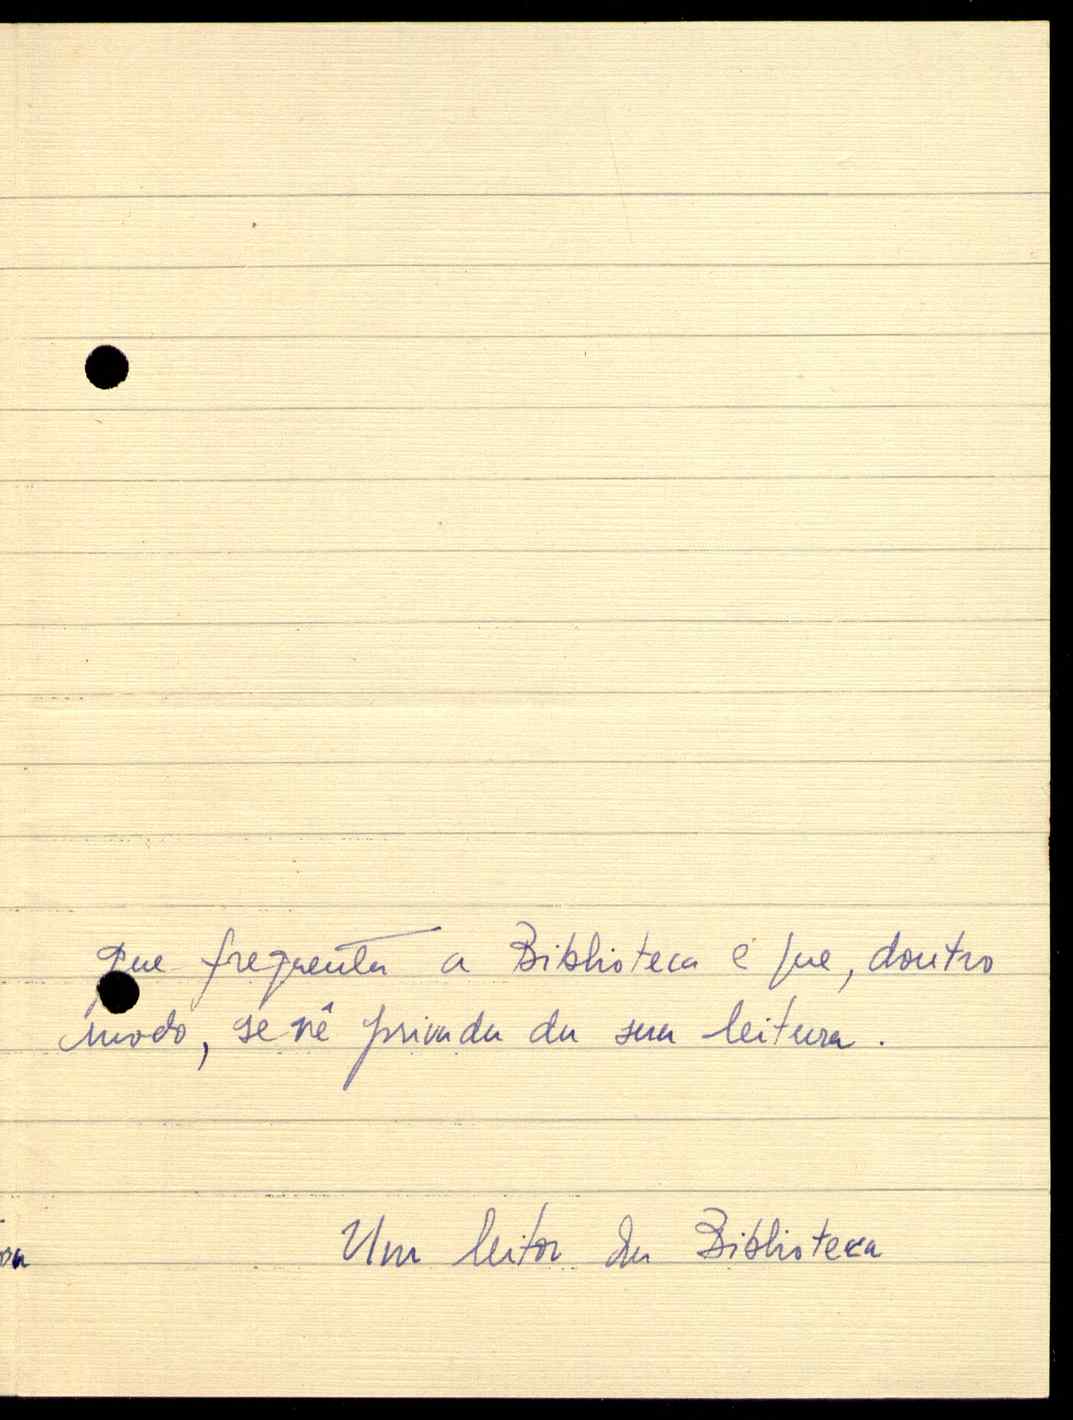 que frequenta a Biblioteca e que, doutro
modo, se vê privada da sua leitura.
Um leitor da Biblioteca